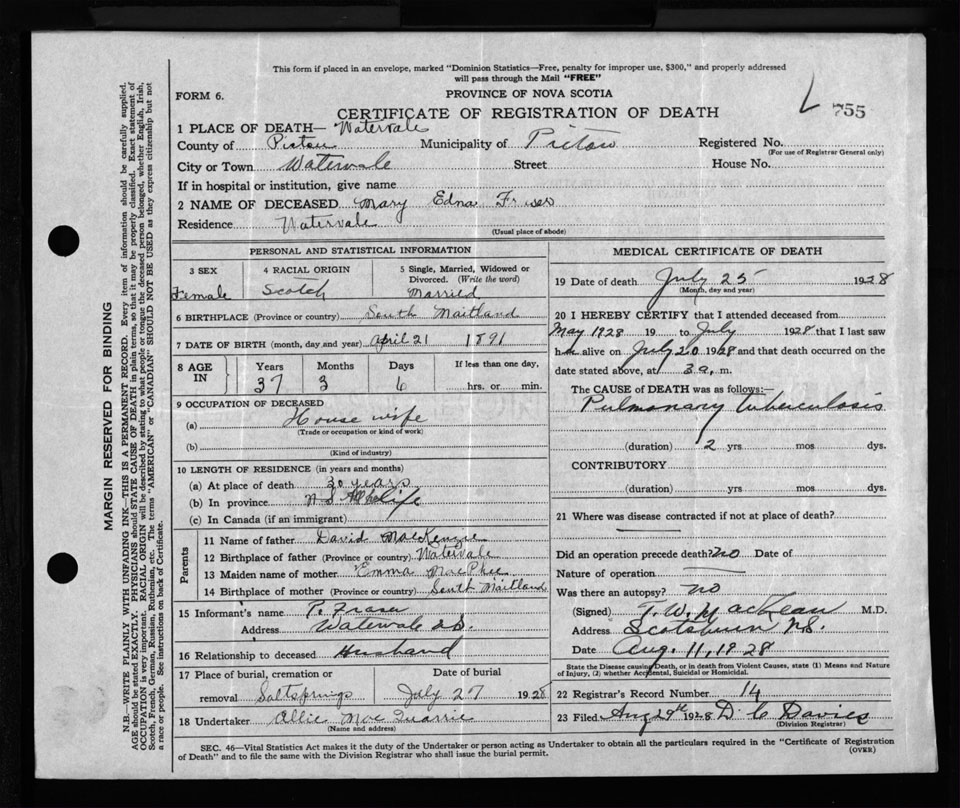 This form if placed in an envelope, marked "Dominion Statistics—Free, penalty for improper use, $300," and properly addressed
will pass through the Mail "FREE"
FORM 6.
PROVINCE OF NOVA SCOTIA
755
CERTIFICATE OF REGISTRATION OF DEATH
1 PLACE OF DEATH— Watervale
County of Pictou Municipality of Pictou Registered No.
(For use of Registrar General only)
City or Town Watervale Street House No.
If in hospital or institution, give name
2 NAME OF DECEASED Mary Edna Fraser
Residence Watervale
(Usual place of abode)
PERSONAL AND STATISTICAL INFORMATION
3 SEX
Female
4 RACIAL ORIGIN
Scotch
5 Single, Married, Widowed or
Divorced. (Write the word)
Married
6 BIRTHPLACE (Province or country) South Maitland
7 DATE OF BIRTH (month, day and year) April 21 1891
8 AGE
IN
Years
37
Months
3
Days
6
If less than one day,
hrs. or min.
9 OCCUPATION OF DECEASED
(a) House wife
(Trade or occupation or kind of work)
(b)
(Kind of industry)
10 LENGTH OF RESIDENCE (in years and months)
(a) At place of death 30 years
(b) In province N S life
(c) In Canada (if an immigrant)
Parents
11 Name of father David MacKenzie
12 Birthplace of father (Province or country) Watervale
13 Maiden name of mother Emma MacPhee
14 Birthplace of mother (Province or country) South Maitland
15 Informant's name P. Fraser
Address Watervale N.S.
16 Relationship to deceased Husband
17 Place of burial, cremation or
removal Saltsprings
Date of burial
July 27 1928
18 Undertaker Allie MacQuarrie
(Name and address)
MEDICAL CERTIFICATE OF DEATH
19 Date of death July 25 1928
(Month, day and year)
20 I HEREBY CERTIFY that I attended deceased from
May 1928 19 to July 1928 that I last saw
h alive on July 20 1928 and that death occurred on the
date stated above, at 3 a. m.
The CAUSE of DEATH was as follows:—
Pulmonary tuberculosis
(duration) 2 yrs mos dys.
CONTRIBUTORY
(duration) yrs mos dys.
21 Where was disease contracted if not at place of death?
Did an operation precede death? no Date of
Nature of operation
Was there an autopsy? no
(Signed) J. W. MacKean M.D.
Address Scotsburn N.S.
Date Aug. 11, 1928
State the Disease causing Death, or in death from Violent Causes, state (1) Means and Nature
of Injury, (2) whether Accidental, Suicidal or Homicidal.
22 Registrar's Record Number 14
23 Filed Aug 29th 1928 D C Davies
(Division Registrar)
SEC. 46—Vital Statistics Act makes it the duty of the Undertaker or person acting as Undertaker to obtain all the particulars required in the "Certificate of Registration
of Death" and to file the same with the Division Registrar who shall issue the burial permit.
(OVER)
MARGIN RESERVED FOR BINDING
N.B.—WRITE PLAINLY WITH UNFADING INK—THIS IS A PERMANENT RECORD. Every item of information should be carefully supplied.
AGE should be stated EXACTLY. PHYSICIANS should STATE CAUSE OF DEATH in plain terms, so that it may be properly classified. Exact statement of
OCCUPATION is very important. RACIAL ORIGIN will be described by stating to what people or tongue the deceased person belonged, whether English, Irish,
Scotch, French, German, Russian, Ruthenian, etc. The terms "AMERICAN" or "CANADIAN" SHOULD NOT BE USED as they express citizenship but not
a race or people. See instructions on back of Certificate.